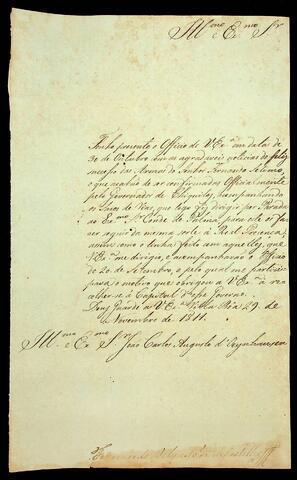 Illmo e Exmo Sr
Tenho presente o Officio de V Exª em data de
30 de Outubro com as agradaveis noticias do feliz
sucesso das Armas do Senhor Fernando Setimo,
o que acabão de ser confirmadas Officialmente
pelo Governador de Chiquitos, acompanhando
os Sacos de Vias, que logo fiz dirigir por Parada
ao Exmo Sr Conde de Palma, para elle os fazer
aquî da mesma sorte à Real Presença,
assim como o tinha feito com aquelles, que
V Exª me dirigio, e acompanharão o Officio
de 20 de Setembro, e pelo qual me participa
o motivo que obrigou a V Exª a
recolher-se à Capital d'esse Governo.
Deos Guarde a V Exª Villa Rica 29 de
Novembro de 1811.
Illmo e Exmo Sr João Carlos Augusto d'Oeynhausen